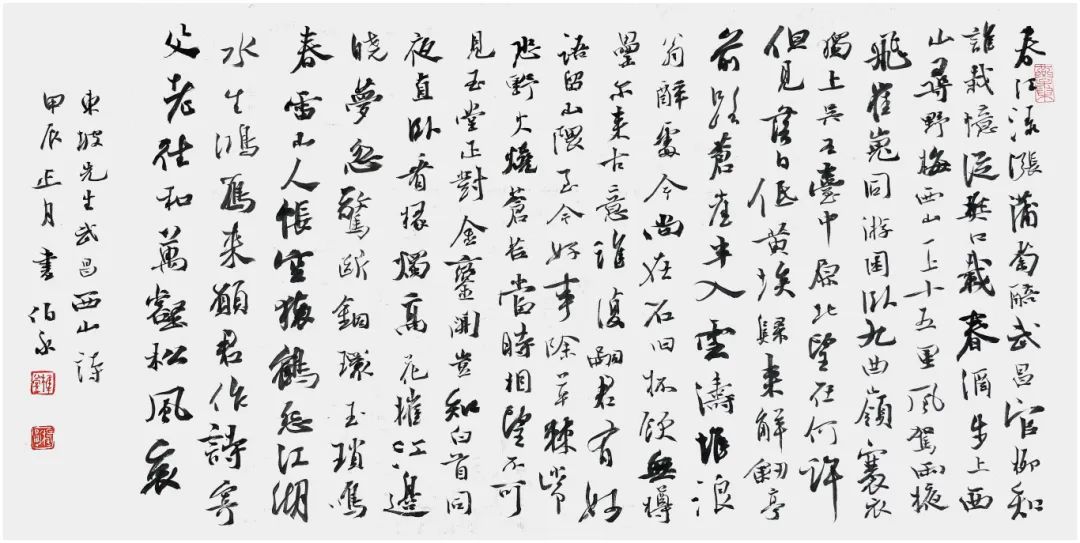 春江渌漲蒲萄醅武昌官柳知
誰栽憶從樊口載春酒步上西
山尋野梅西山一上十五里風駕兩腋
飛崔嵬同游困臥九曲嶺褰衣
獨上吳王臺中原北望在何許
但見落日低黃埃歸來解劍亭
前路蒼崖半入雲濤堆浪
翁醉處今尚在石臼杯飲無樽
罍尔來古意誰復嗣君有妙
語留山隈至今好事除草棘常
恐野火燒蒼苔當時相望不可
見玉堂正對金鑾開豈知白首同
夜直臥看椽燭高花摧江邊
曉夢忽驚斷銅環玉瑣鳴
春雷山人帳空猿鶴怨江湖
水生鴻雁來願君作詩寄
父老往和萬壑松風哀
東坡先生武昌西山詩
甲辰正月書伯永